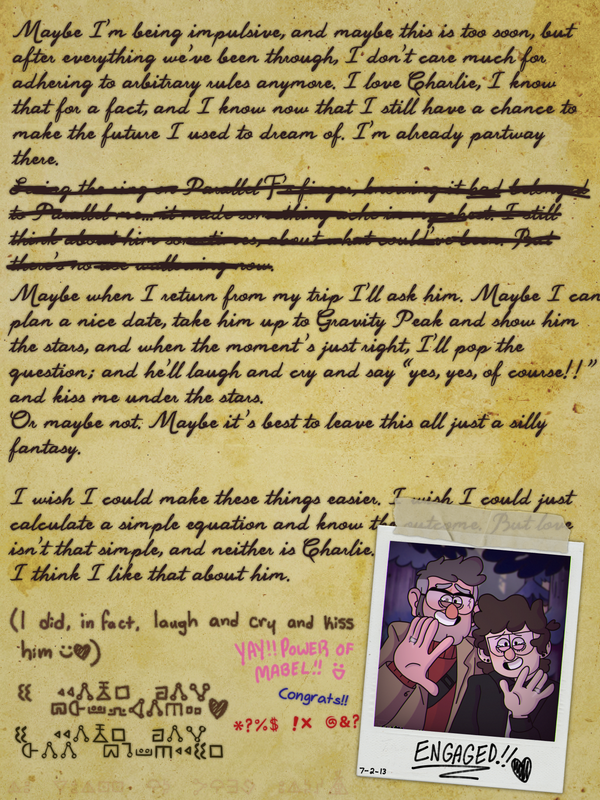 Maybe I'm being impulsive, and maybe this is too soon, but
after everything we've been through, I don't care much for
adhering to arbitrary rules anymore. I love Charlie, I know
that for a fact, and I know now that I still have a chance to
make the future I used to dream of. I'm already partway
there.
Seeing the ring on Parallel F's finger, knowing it had belonged
to Parallel me... it made something ache in my chest. I still
think about him sometimes, about what could've been. But
there's no use wallowing now.
Maybe when I return from my trip I'll ask him. Maybe I can
plan a nice date, take him up to Gravity Peak and show him
the stars, and when the moment's just right, I'll pop the
question; and he'll laugh and cry and say "yes, yes, of course!!"
and kiss me under the stars.
Or maybe not. Maybe it's best to leave this all just a silly
fantasy.
I wish I could make these things easier. I wish I could just
calculate a simple equation and know the outcome. But love
isn't that simple, and neither is Charlie.
I think I like that about him.
(I did, in fact, laugh and cry and kiss
him)
YAY!! POWER OF
MABEL!!
Congrats!!
*?%$ !x @&?
ENGAGED!!
7-2-13